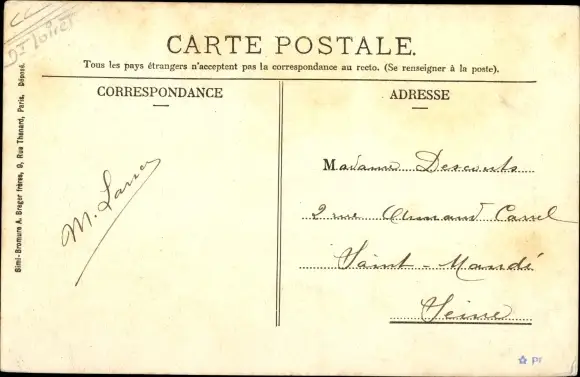 Dt Loiret
CARTE POSTALE.
Tous les pays étrangers n'acceptent pas la correspondance au recto. (Se renseigner à la poste).
CORRESPONDANCE
ADRESSE
Simi-Bromure A. Breger frères, 9, Rue Thénard, Paris. Déposé.
M.
Madame Descouts
2 rue Armand Carrel
Saint-Mandé
Seine
pr